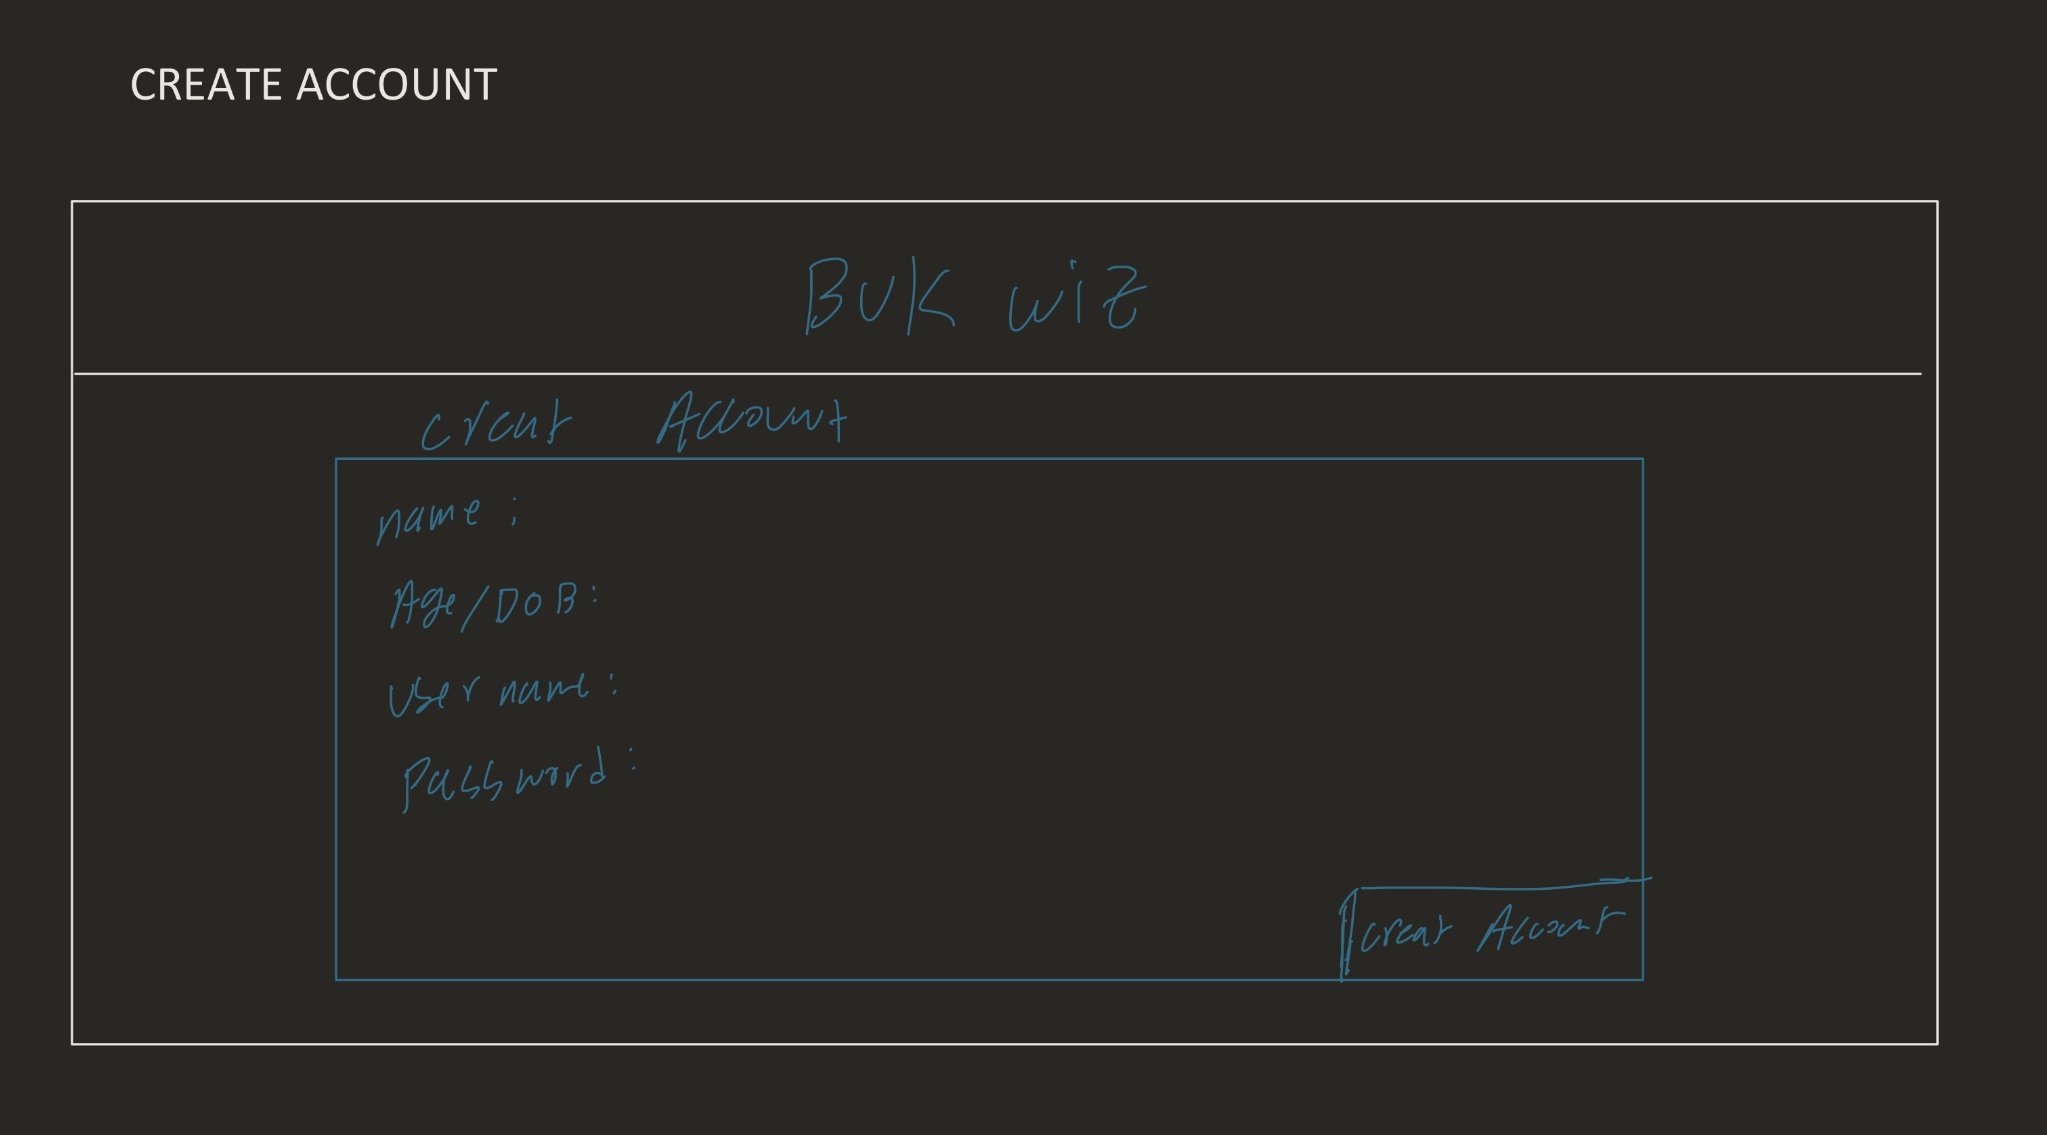 CREATE ACCOUNT
BUK wiz
creat Account
name :
Age/DOB:
User name:
Password:
creat Account